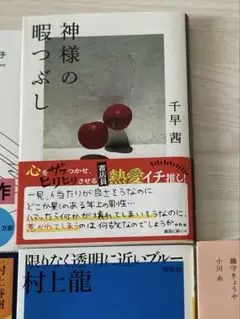 神様の
暇つぶし
千早 茜
心をザワつかせ、
ヒリヒリさせる
書店員
熱愛イチ推し!
一見、人当たりが良さそうなのに
どこか影のある年上の男性…
ハマったら何かが壊れてしまいそうなのに、
惹かれてしまうのは何故なのでしょうか…。
子
作
村上春樹
限りなく透明に近いブルー
村上龍
新装版
小川 糸